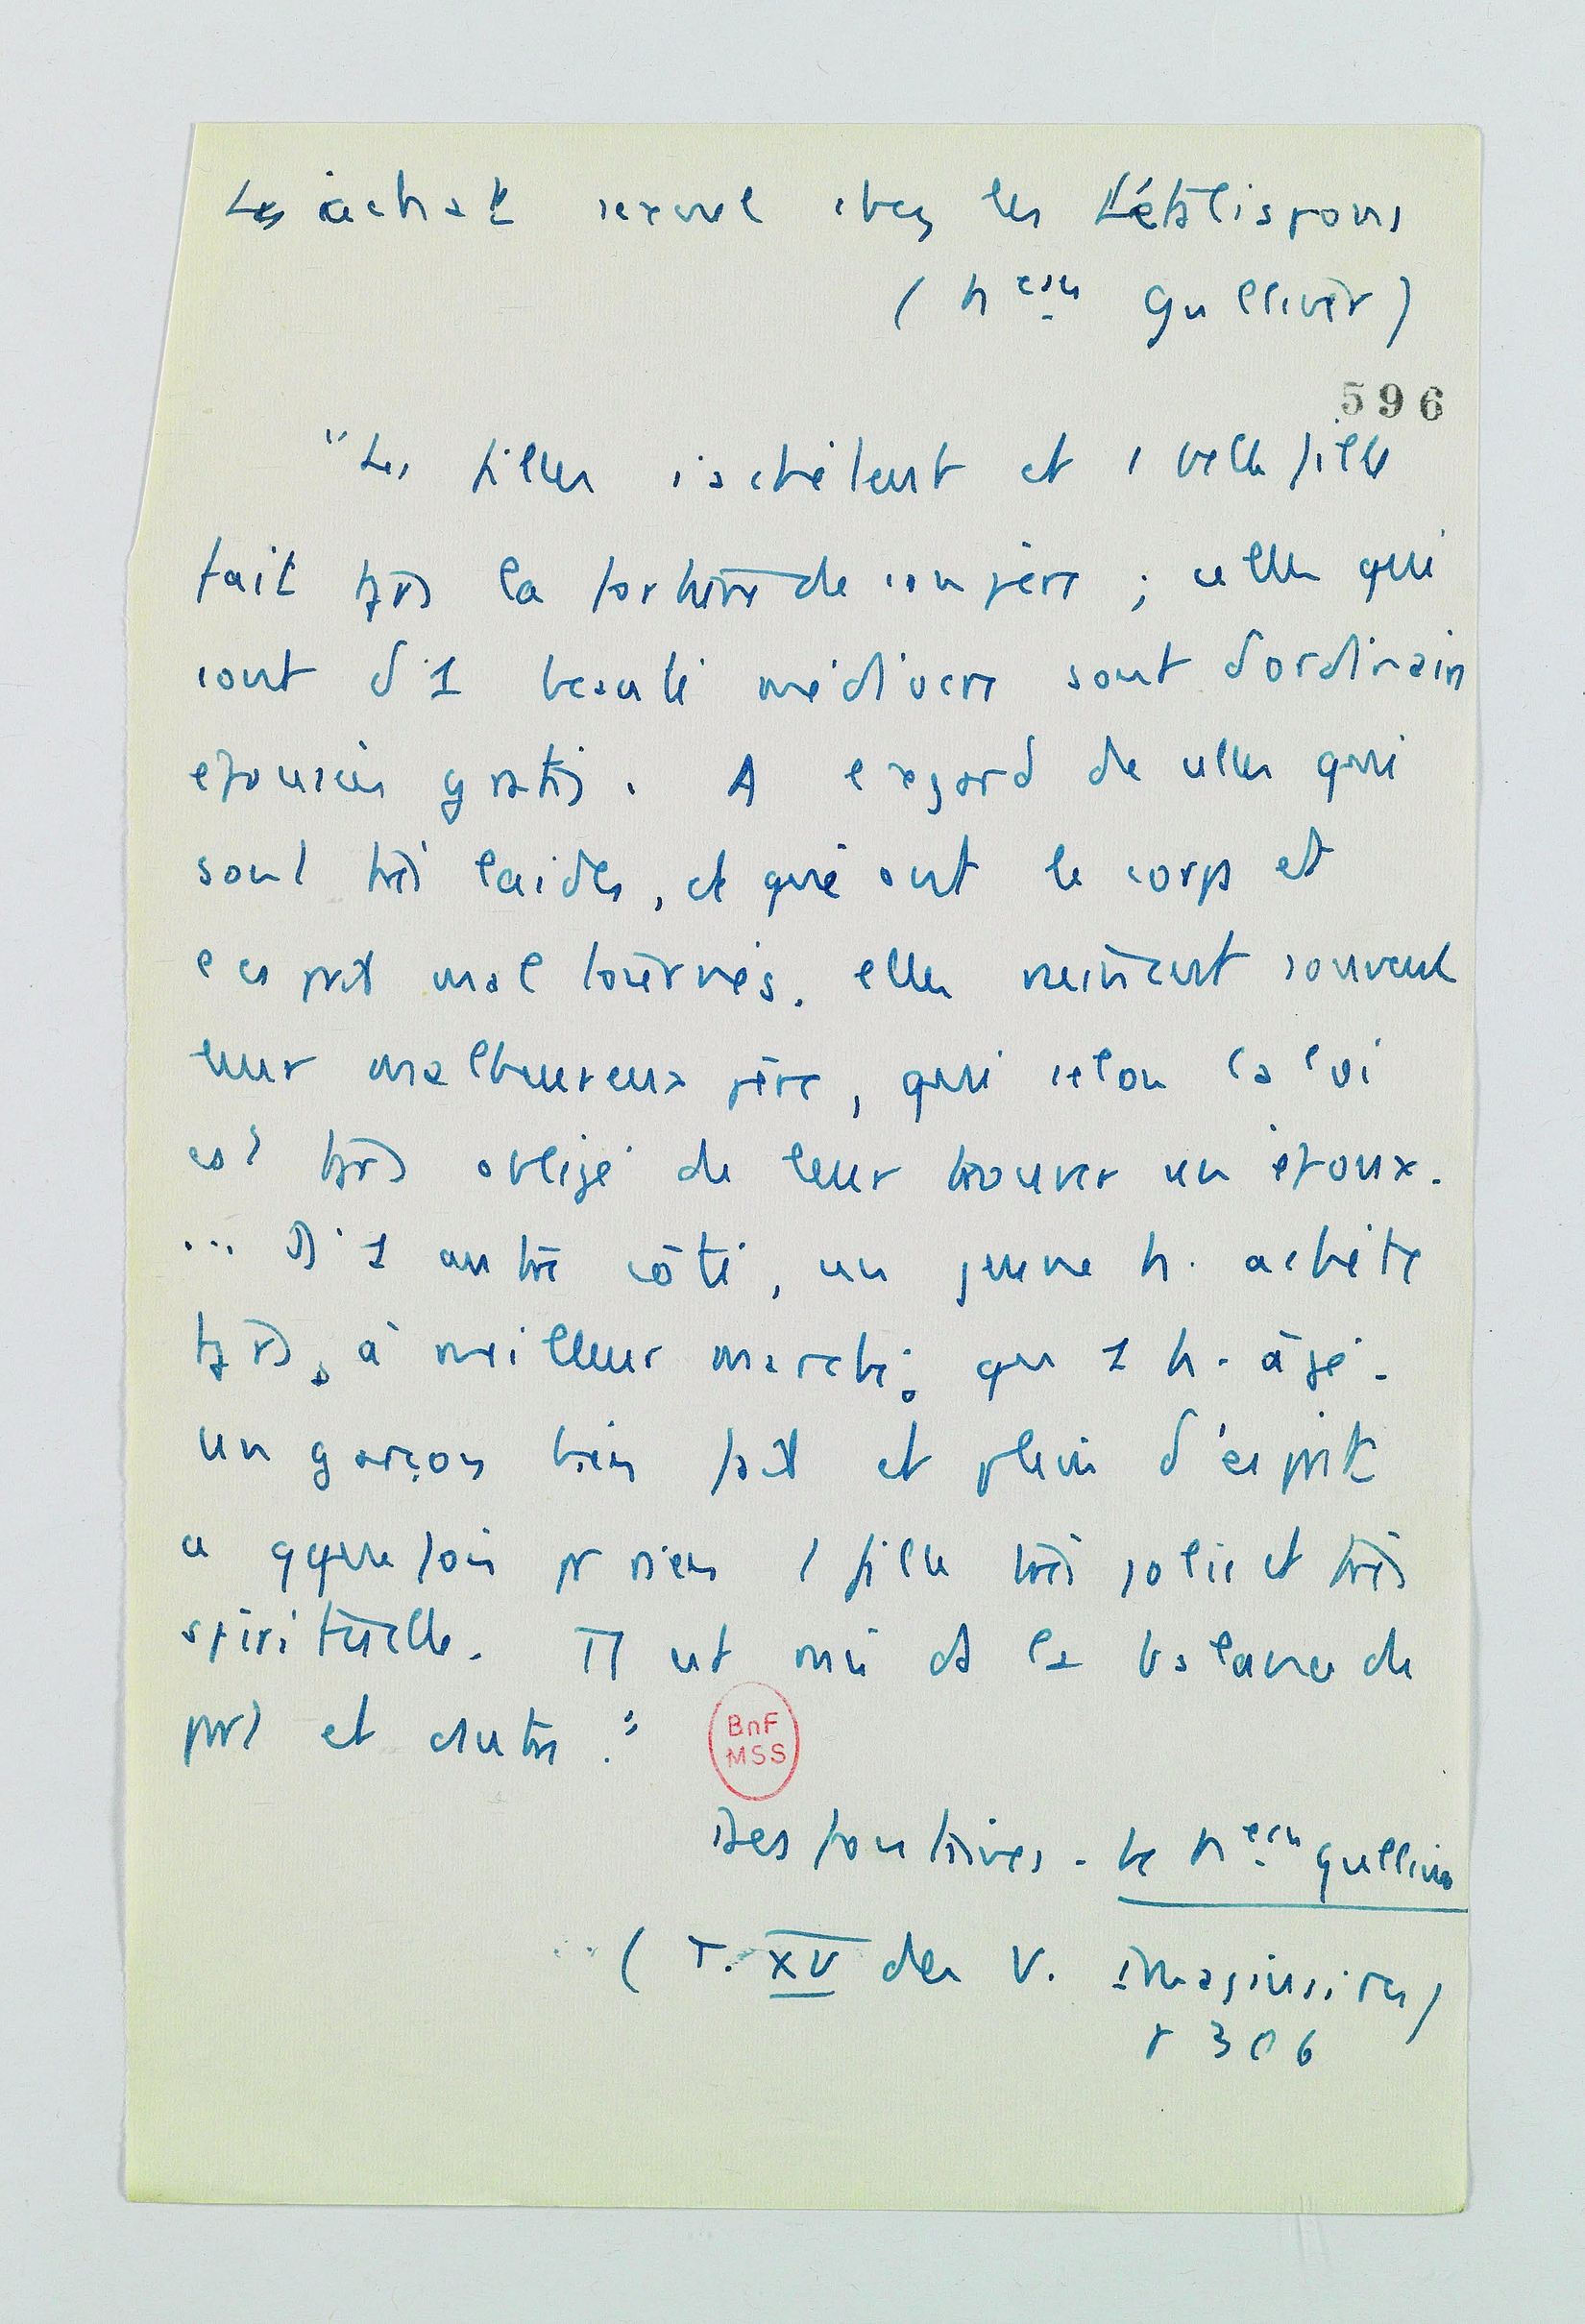 Les achat sexuel chez les Létalispons
(Neau Gulliver)
596
"Les filles s'achètent et 1 belle fille
fait tjrs la fortune de son père ; celles qui
sont d'1 beauté médiocre sont d'ordinaire
epousées gratis. A l'egard de celles qui
sont très laides, et qui ont le corps et
l'esprit mal tournés. elles ruinent souvent
leur malheureux père, qui selon la loi
est tjrs obligé de leur trouver un époux.
... D'1 autre côté, un jeune h. achète
tjrs, à meilleur marché, qu 1 h. âgé.
Un garçon bien fait et plein d'esprit
a qque fois pr rien 1 fille très jolie et très
spirituelle. Tt est mis ds la balance de
part et autre."
BnF
MSS
Desfontaines. Le Neau Gulliver
(T. XV des V. imaginaires)
p 306